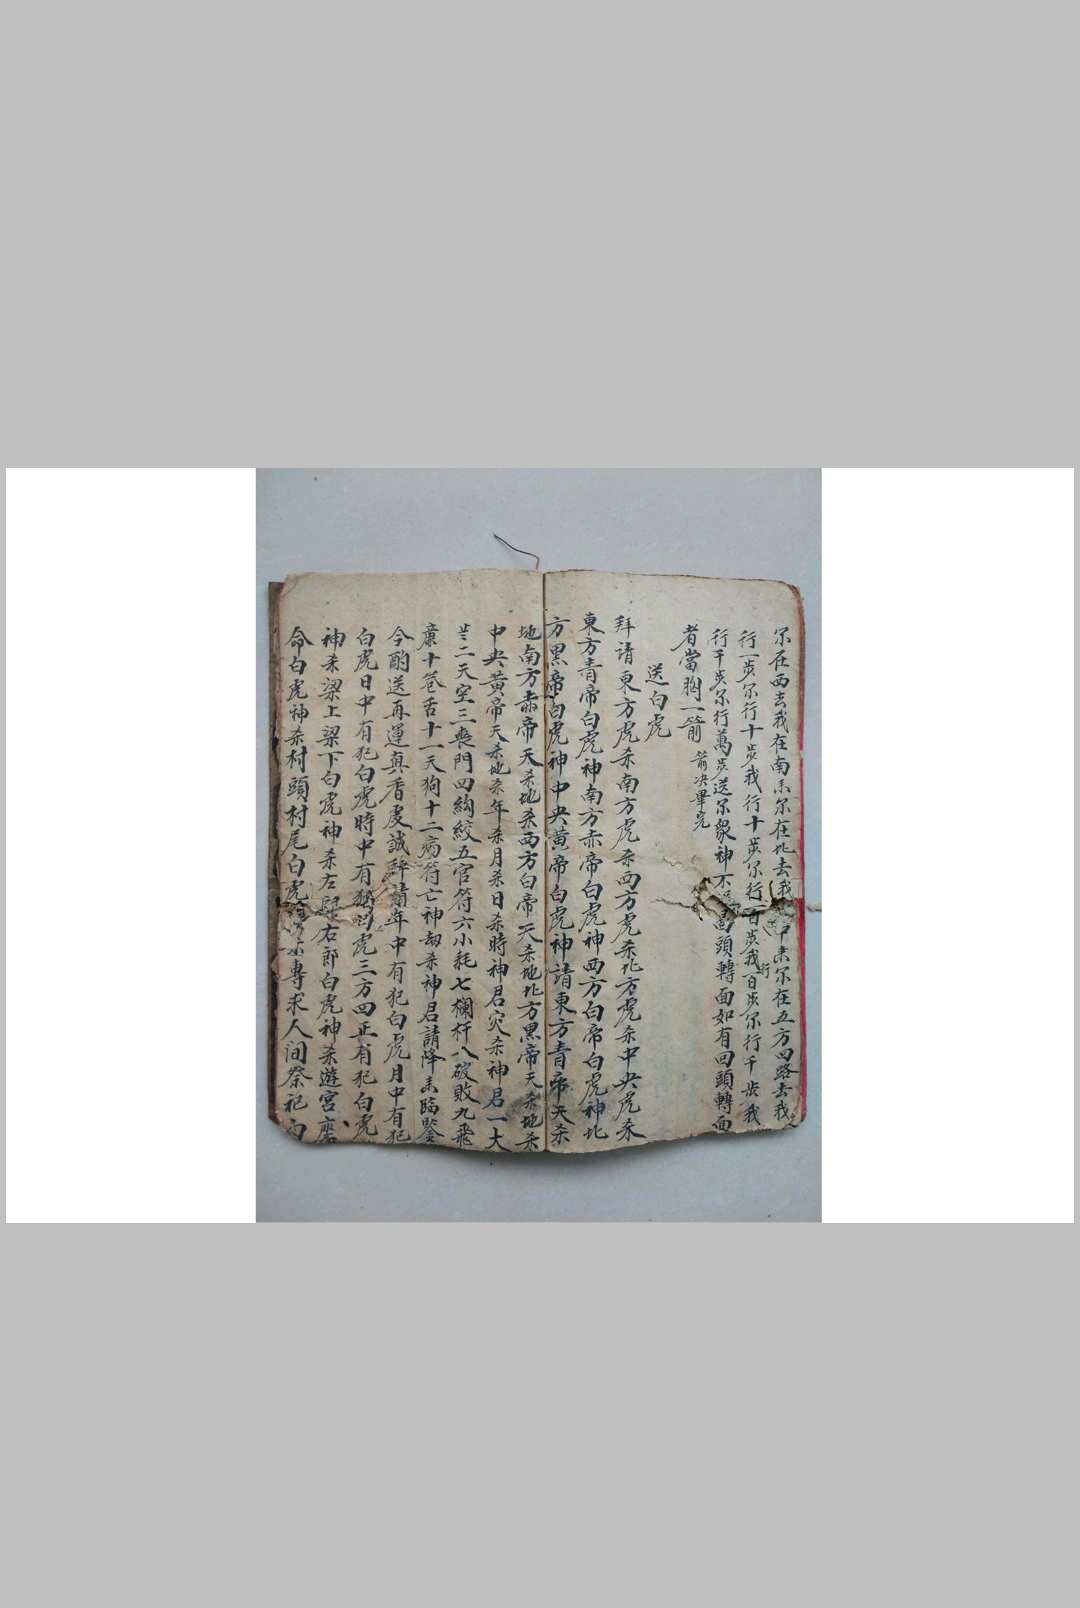 尔在西去我在南来尔在北去我中来尔在五方四路去我
行一步尔行十步我行十步尔行百步我行百步尔行千步我
行千步尔行萬步送尔眾神不回頭轉面如有回頭轉面
者當胸一箭 箭决畢完
送白虎
拜請東方虎杀南方虎杀西方虎杀北方虎杀中央虎杀
東方青帝白虎神南方赤帝白虎神西方白帝白虎神北
方黑帝白虎神中央黄帝白虎神請東方青帝天杀
地南方赤帝天杀地杀西方白帝天杀地北方黑帝天杀地杀
中央黄帝天杀地杀年杀月杀日杀時神君灾杀神君一大
二天空三喪門四絢絞五官符六小耗七欄杆八破敗九飛
廉十卷舌十一天狗十二病符亡神劫杀神君請降来臨鑒
今酌送再運真香虔誠拜請年中有犯白虎月中有犯
白虎日中有犯白虎時中有犯白虎三方四正有犯白虎
神杀梁上梁下白虎神杀左右郎白虎神杀遊宮
命白虎神杀村頭村尾白虎專求人间祭祀白